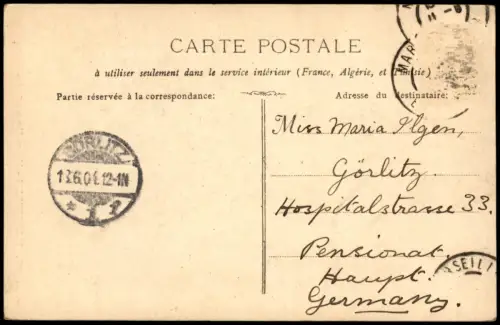 CARTE POSTALE
à utiliser seulement dans le service intérieur (France, Algérie, et Tunisie)
Partie réservée à la correspondance:
Adresse du destinataire:
Miss Maria Ilgen,
Görlitz.
Hospitalstrasse 33.
Pensionat.
Haupt.
Germany.
GÖRLITZ
13.6.04.12-1N
* 1 *
MAR
SEILL